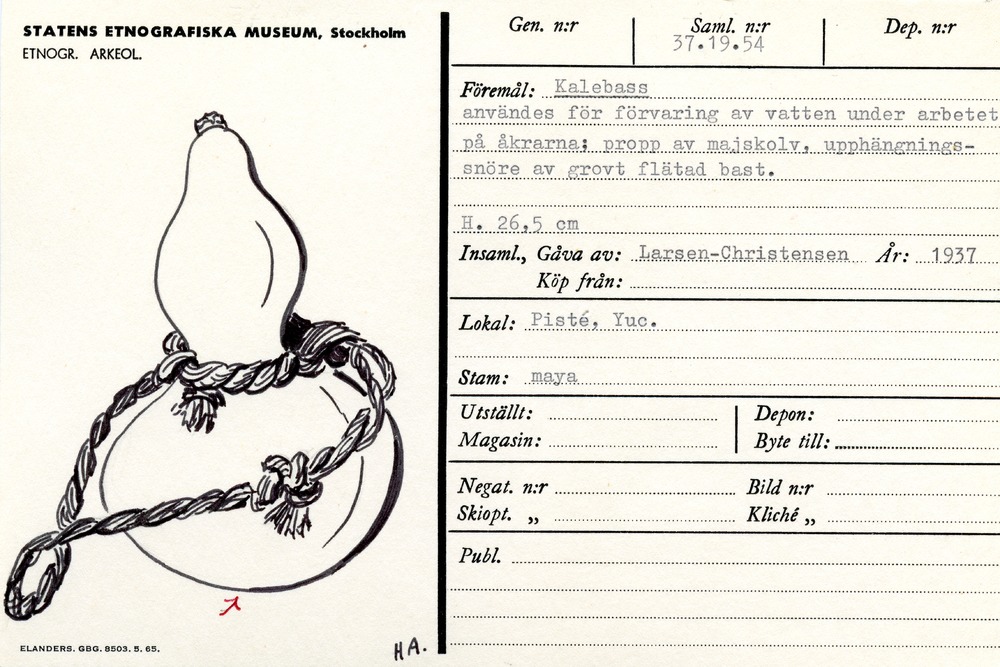 STATENS ETNOGRAFISKA MUSEUM, Stockholm
ETNOGR. ARKEOL.
Gen. n:r Saml. n:r Dep. n:r
37.19.54
Föremål: Kalebass
användes för förvaring av vatten under arbetet
på åkrarna; propp av majskolv, upphängnings-
snöre av grovt flätad bast.
H. 26,5 cm
Insaml., Gåva av: Larsen-Christensen År: 1937
Köp från:
Lokal: Pisté, Yuc.
Stam: maya
Utställt: Depon:
Magasin: Byte till:
Negat. n:r Bild n:r
Skiopt. „ Kliché „
Publ.
ELANDERS. GBG. 8503. 5. 65.
HA.